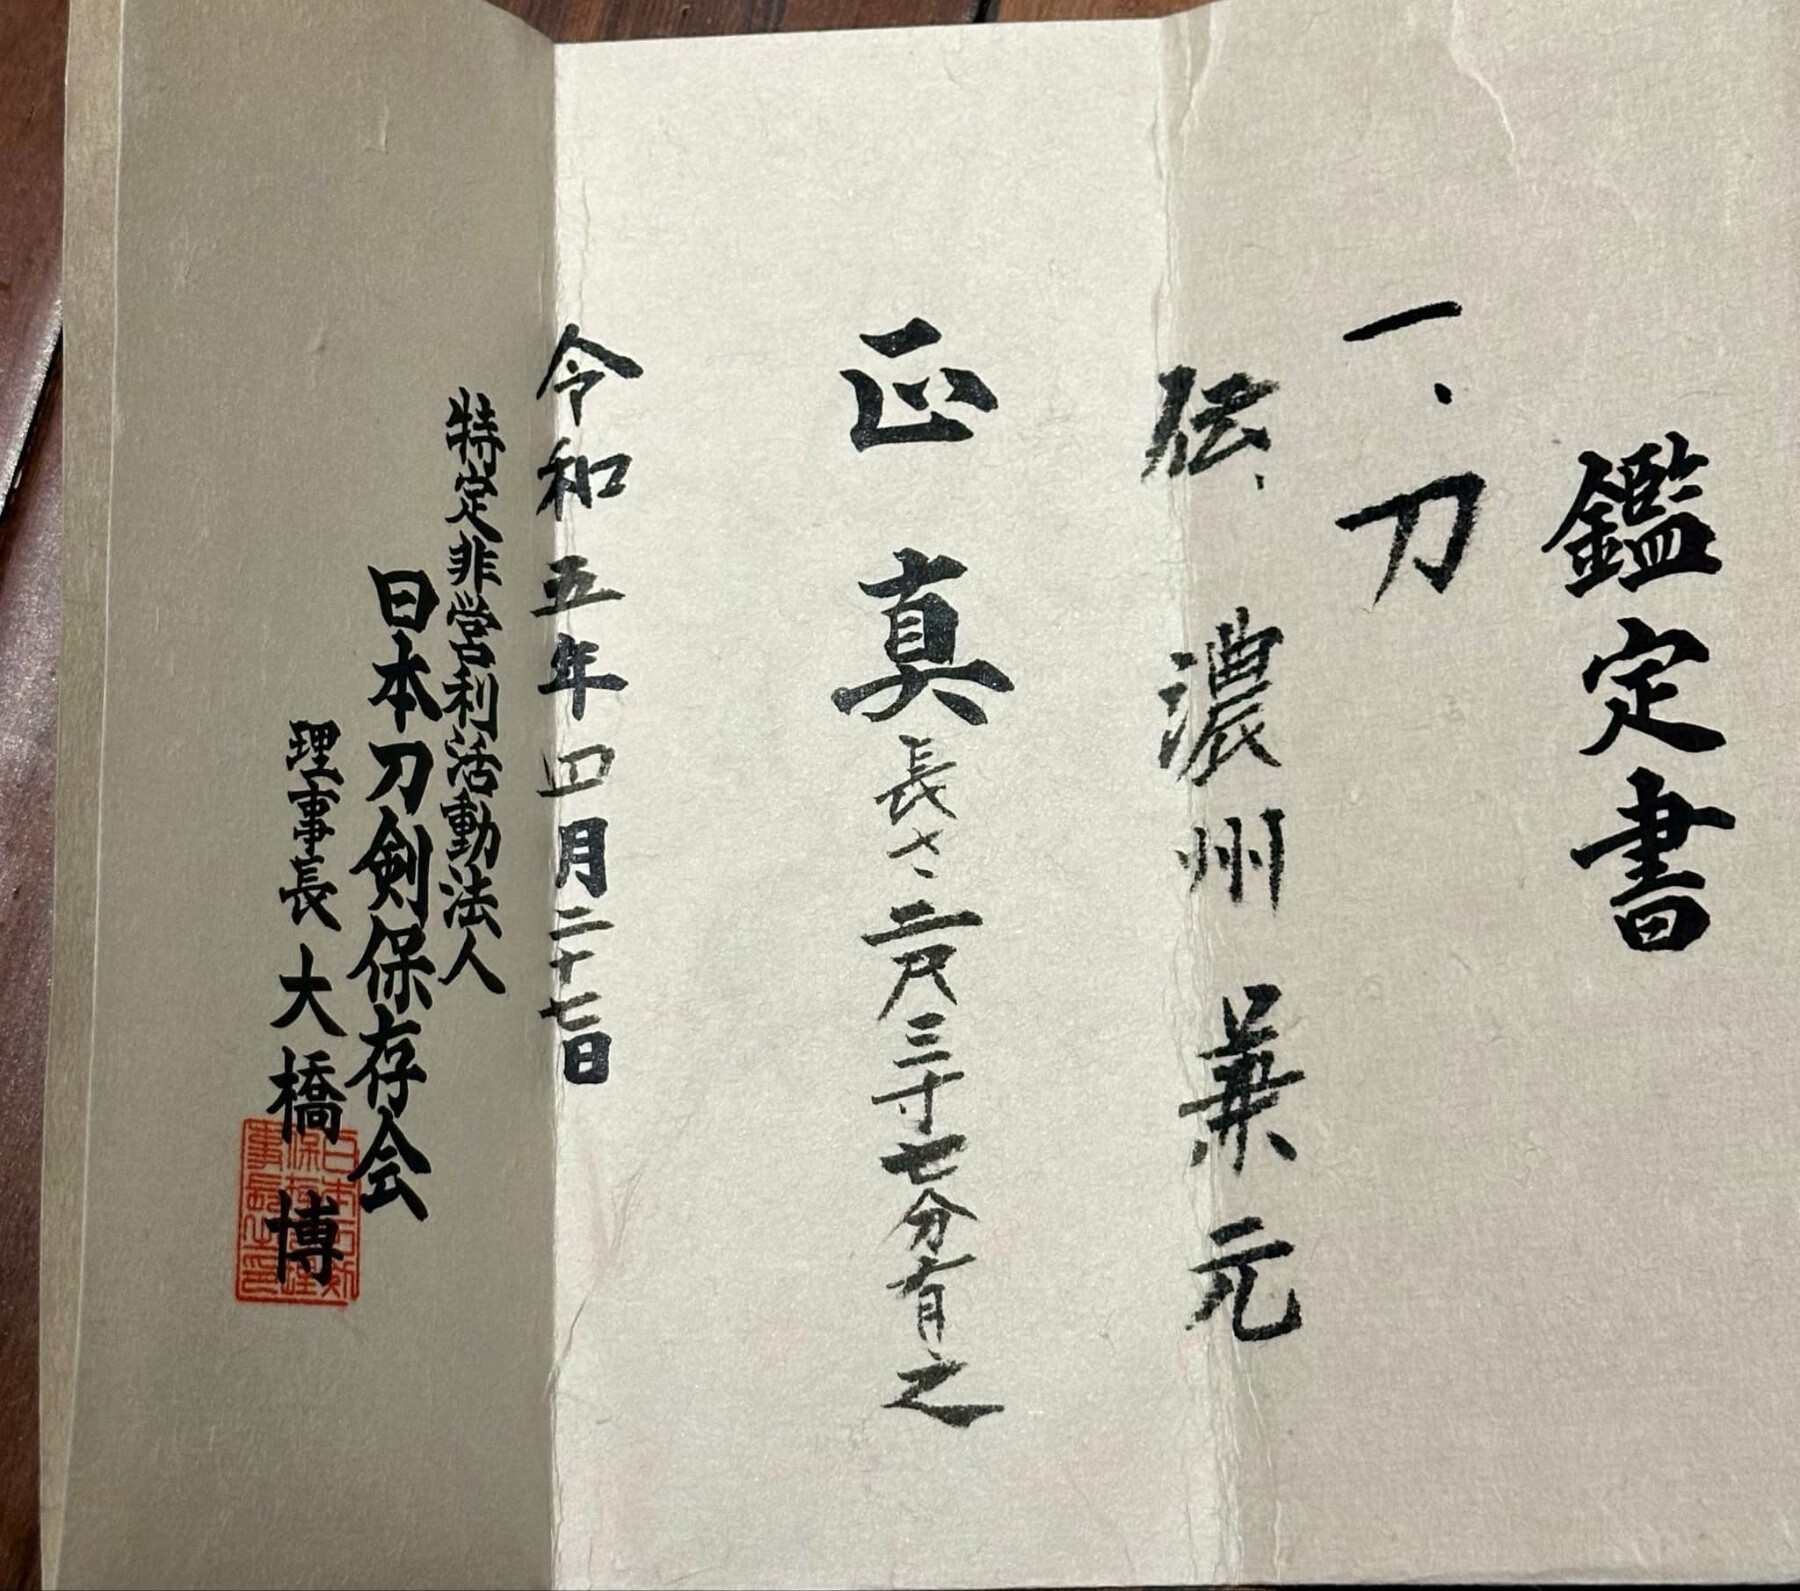 鑑定書
一、刀
伝 濃州 兼元
正真
長さ二尺三寸七分有之
令和五年四月二十七日
特定非営利活動法人
日本刀剣保存会
理事長 大橋 博